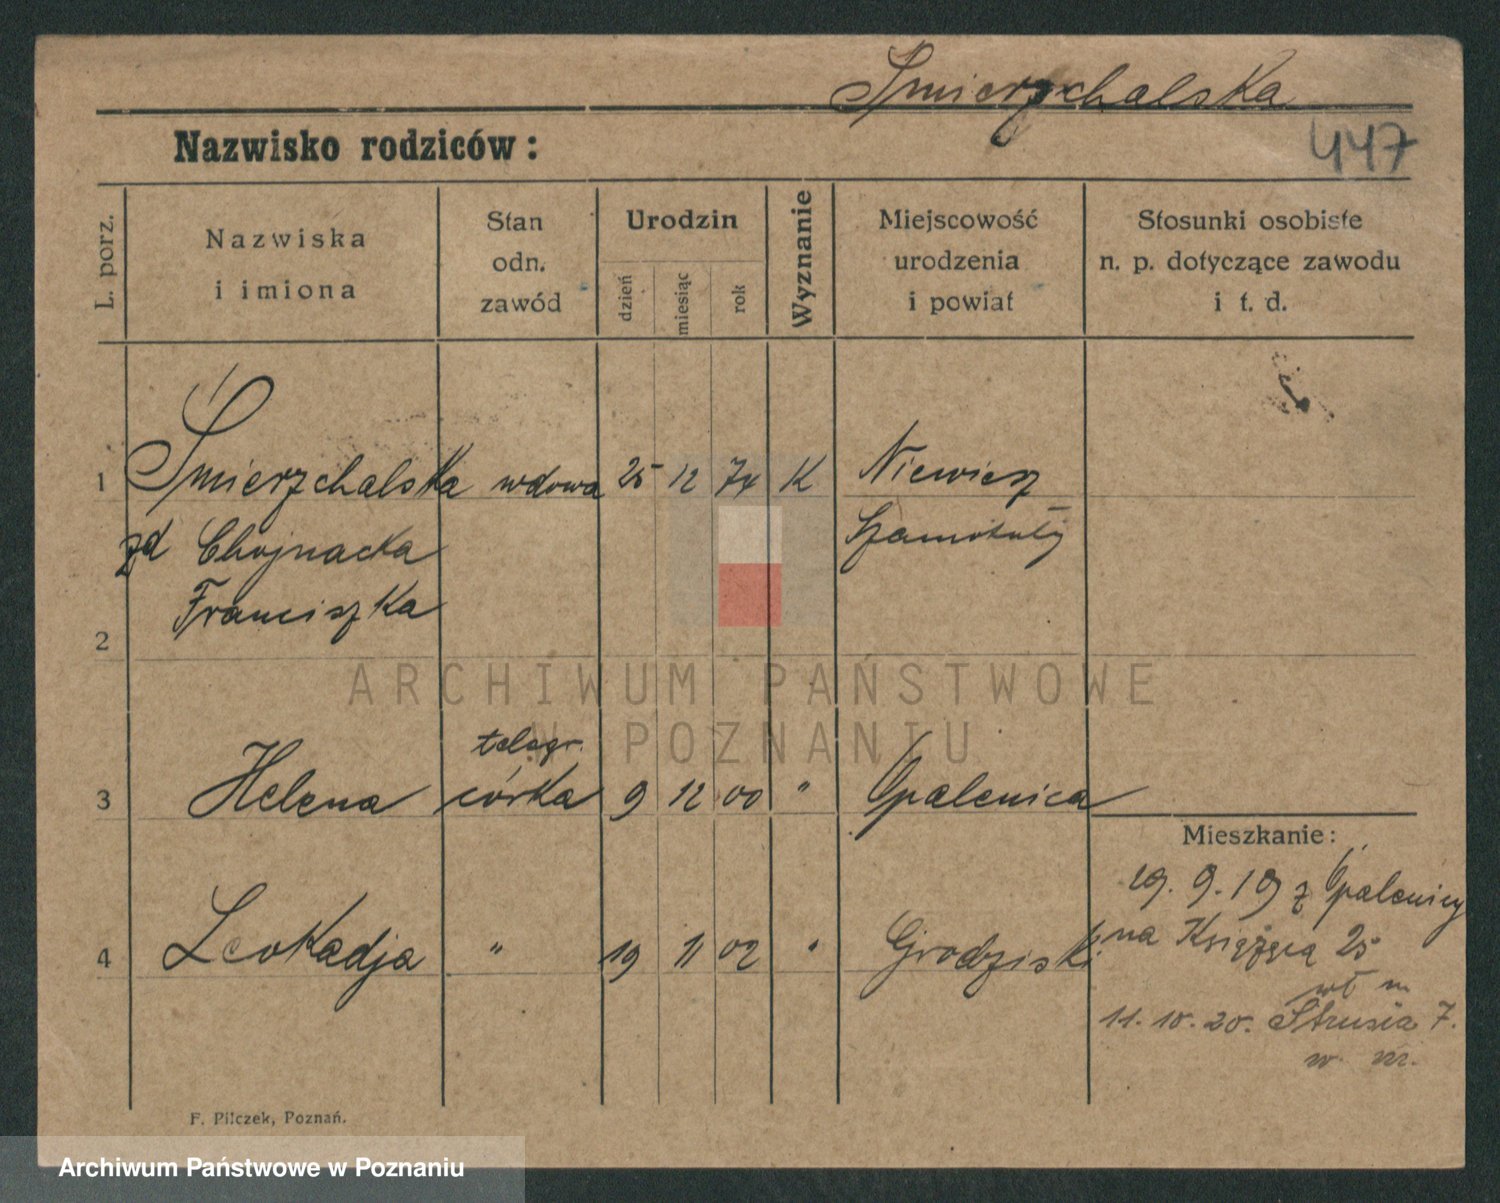 Śmierzchalska
447
Nazwisko rodziców:
L. porz.
Nazwiska
i imiona
Stan
odn.
zawód
Urodzin
dzień
miesiąc
rok
Wyznanie
Miejscowość
urodzenia
i powiat
Stosunki osobiste
n. p. dotyczące zawodu
i t. d.
1 Śmierzchalska wdowa 25 12 74 K Niewiesz
zd Chojnacka Szamotuły
Franciszka
2
ARCHIWUM PAŃSTWOWE
W POZNANIU
telegr.
3 Helena córka 9 12 00 " Opalenica
Mieszkanie:
29. 9. 19 z Opalenicy
na Książęcą 25
4 Leokadja " 19 11 02 " Grodziski
wł m
11. 10. 20. Strusia 7.
w m.
F. Pilczek, Poznań.
Archiwum Państwowe w Poznaniu